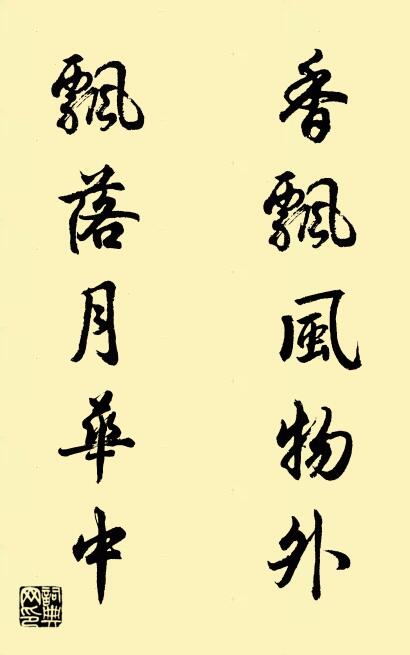 香飄風物外
飄落月華中
詞典網印